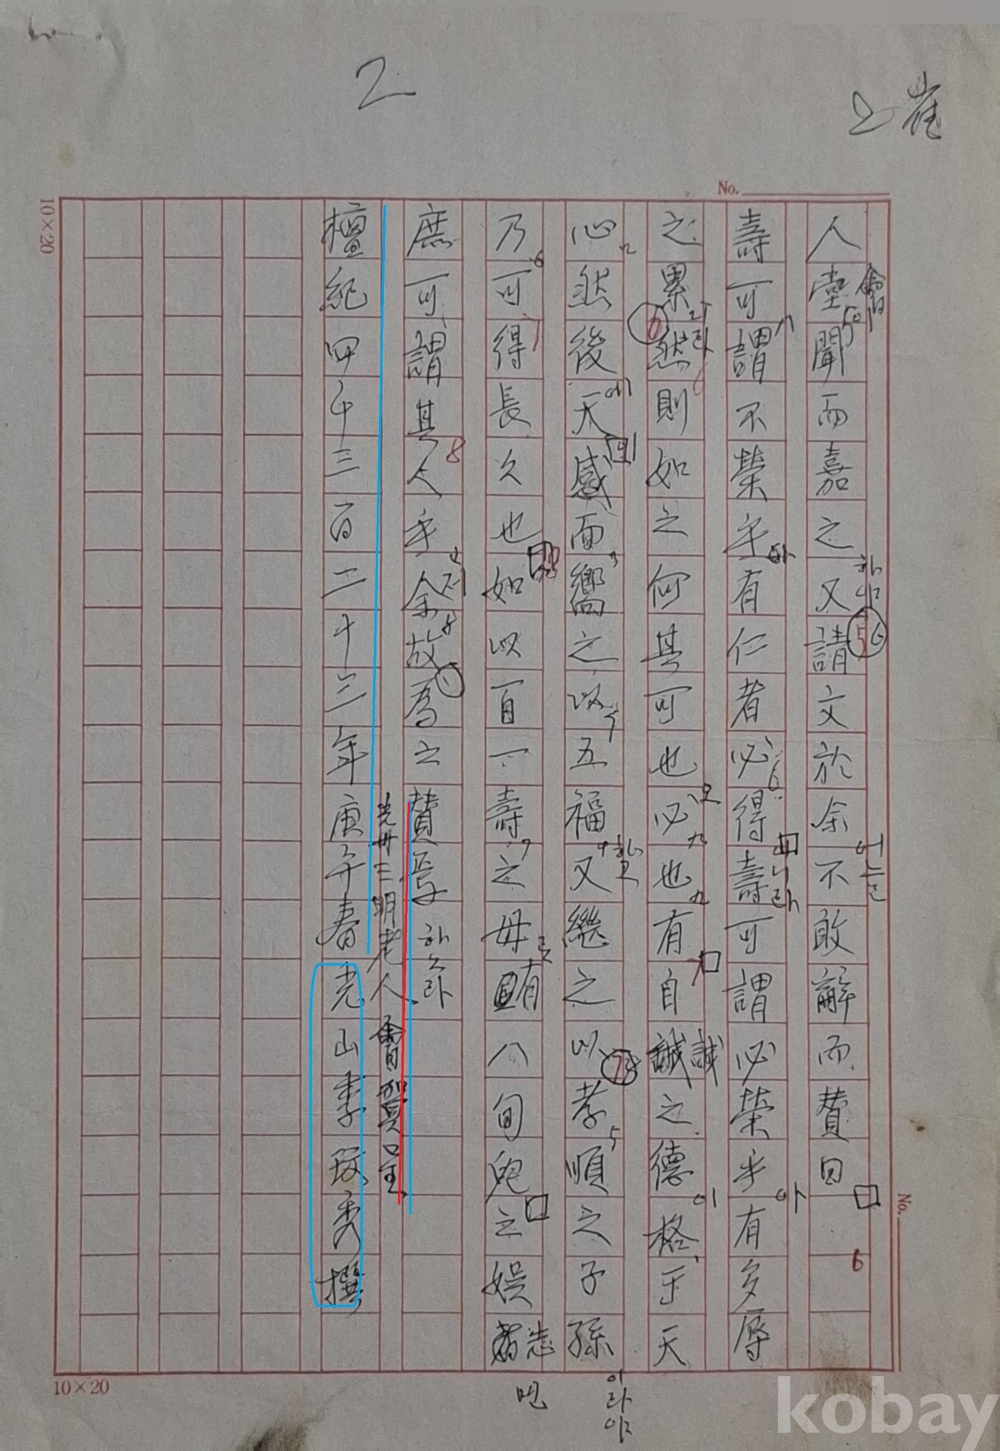 2
崔
No.
10×20
人壹聞而嘉之又請文於余不敢辭而贊曰
壽可謂不榮乎有仁者必得壽可謂必榮乎有多辱
之累然則如之何其可也必也有自誠之德格于天
心然後天感而嚮之以五福又繼之以孝順之子孫
乃可得長久也如以百一壽之母有八旬兒之娛者
庶可謂其人乎余故為之贊焉
檀紀四千三百二十三年庚午春光山李玟秀撰
三明老人
하노라
이라야
10×20
No.
kobay